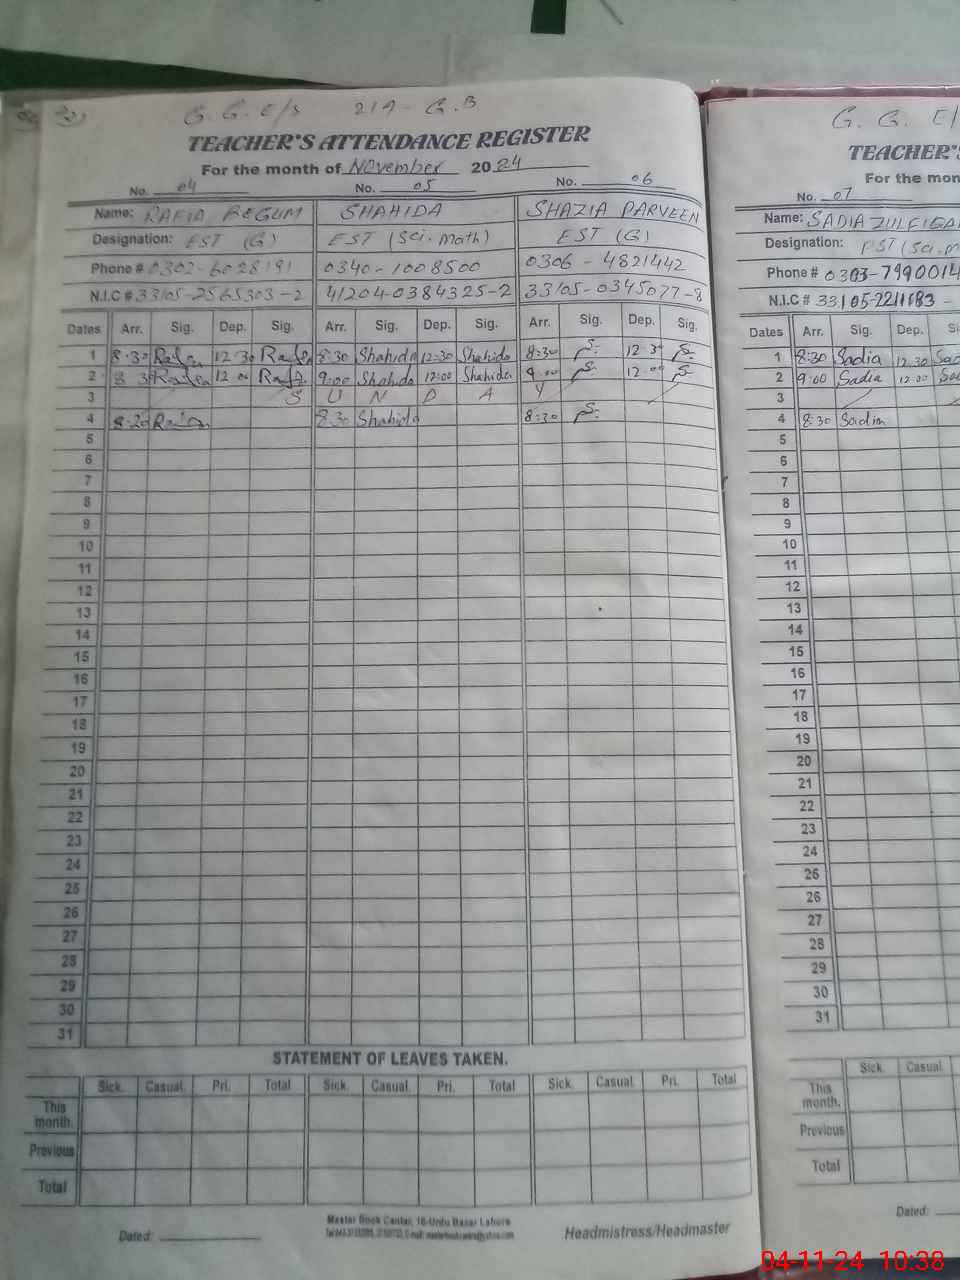 G. G. E/S 219 - G.B
TEACHER'S ATTENDANCE REGISTER
For the month of November 2024
No. 04 No. 05 No. 06
Name: RAFIA BEGUM SHAHIDA SHAZIA PARVEEN
Designation: EST (G) EST (Sci. Math) EST (G)
Phone # 0302-6028191 0340-1008500 0306-4821442
N.I.C # 33105-2565303-2 41204-0384325-2 33105-0345077-8
Dates Arr. Sig. Dep. Sig. Arr. Sig. Dep. Sig. Arr. Sig. Dep. Sig.
1 8:30 Rafia 12:30 Rafia 8:30 Shahida 12:30 Shahida 8:30 S. 12:30 S.
2 Rafia 12:00 Rafia 9:00 Shahida 12:00 Shahida 9:00 S. 12:00 S.
3 S U N D A Y
4 8:20 Rafia 8:30 Shahida 8:30 S.
5
6
7
8
9
10
11
12
13
14
15
16
17
18
19
20
21
22
23
24
25
26
27
28
29
30
31
STATEMENT OF LEAVES TAKEN.
Sick. Casual Pri. Total Sick. Casual Pri. Total Sick. Casual Pri. Total
This month.
Previous
Total
Dated: Master Book Center, 16-Urdu Bazar Lahore Headmistress/Headmaster
G. G. E/
TEACHER'S
For the mon
No. 07
Name: SADIA ZULFIQA
Designation: PST (Sci. m
Phone # 0303-7990014
N.I.C # 33105-2211183 -
Dates Arr. Sig. Dep. Si
1 8:30 Sadia 12:30 Sad
2 9:00 Sadia 12:00 Sad
3
4 8:30 Sadia
5
6
7
8
9
10
11
12
13
14
15
16
17
18
19
20
21
22
23
24
25
26
27
28
29
30
31
Sick. Casual
This month.
Previous
Total
Dated:
04-11-24 10:38